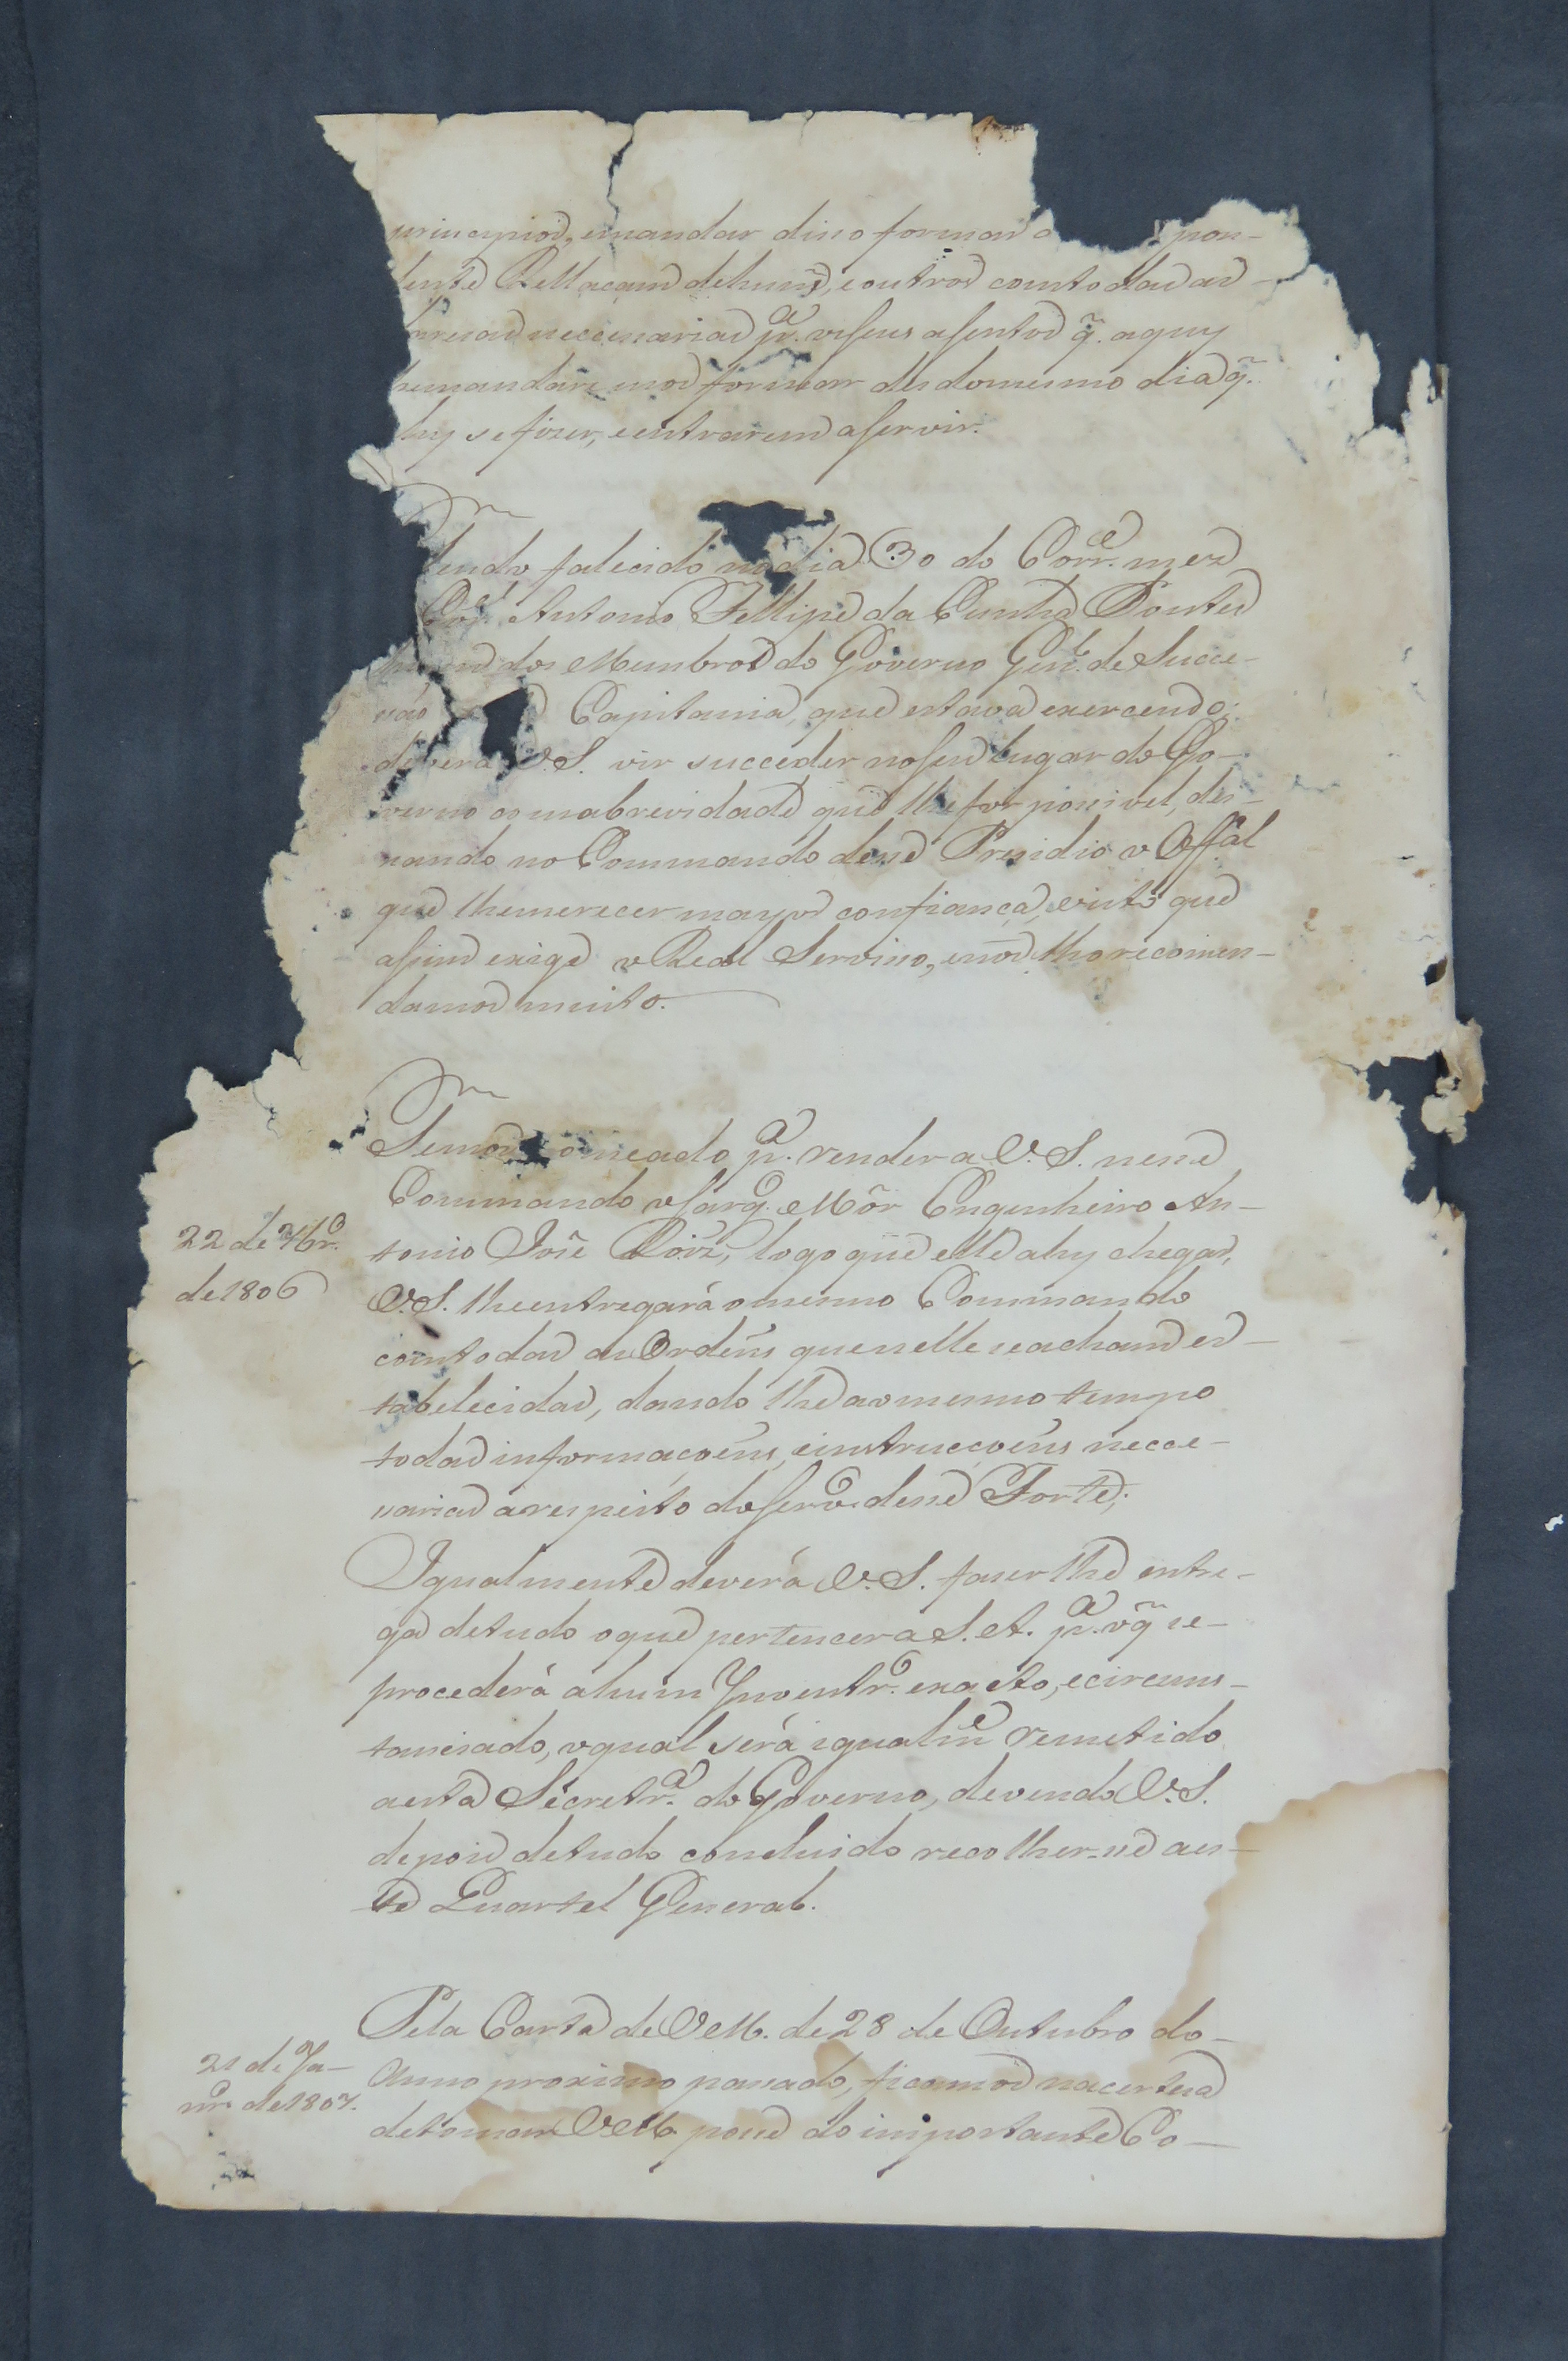 principios, emandar disso formar a pon-
dente Rellaçam dehuns, eoutros comtodas as
necessarias pª. vifsus afsentos q̃. aquy
hemandaremos formar desdomesmo dia q̃.
ahy sefizer, eentrarem afservir.
Tendo falecido nodia 30 do Corrᵉ. mez
Coʳᵉˡ Antonio Fellipe da Cunha Pontes
hum dos Membros do Governo Genˡ. de Succe-
são Capitania, que estava exercendo;
deverá V.S. vir succeder noseu lugar do Go-
verno comabrevidade que lhefor possivel, dei-
xando no Commando desse Presidio o Offᵃl
que lhemerecer mayor confiança, visto que
afsim exige o Real Serviso, enós lhorecomen-
damos muito.
Temos nomeado pª. render a V.S. nesse
Commando o Sargᵗᵒ. Mór Engenheiro An-
tonio José Roiz, logo que elle ahy chegar,
V.S. lheentregará omesmo Commando
comtodas as Ordens quenelle seacham es-
tabelecidas, dando lhe aomesmo tempo
todas informaçoens, einstrucçoens necce-
sarias arespeito doservᵒ. desse Forte;
Igualmente deverá V.S. fazer lhe entre-
ga detudo oque pertencer a S.A. pª. o q̃ se-
procederá ahum Inventrᵒ. exacto, ecircuns-
tanciado, oqual será igualmᵉ remetido
aesta Secretrª. do Governo, devendo V.S.
depois detudo concluido recolher-se aes-
te Quartel General.
22 de 7bʳᵒ.
de 1806
Pela Carta de VM. de 28 de Outubro do-
Anno proximo passado, ficamos nacerteza
detomar VM posse do importante Co-
21 de Ja-
nrᵒ. de 1807.